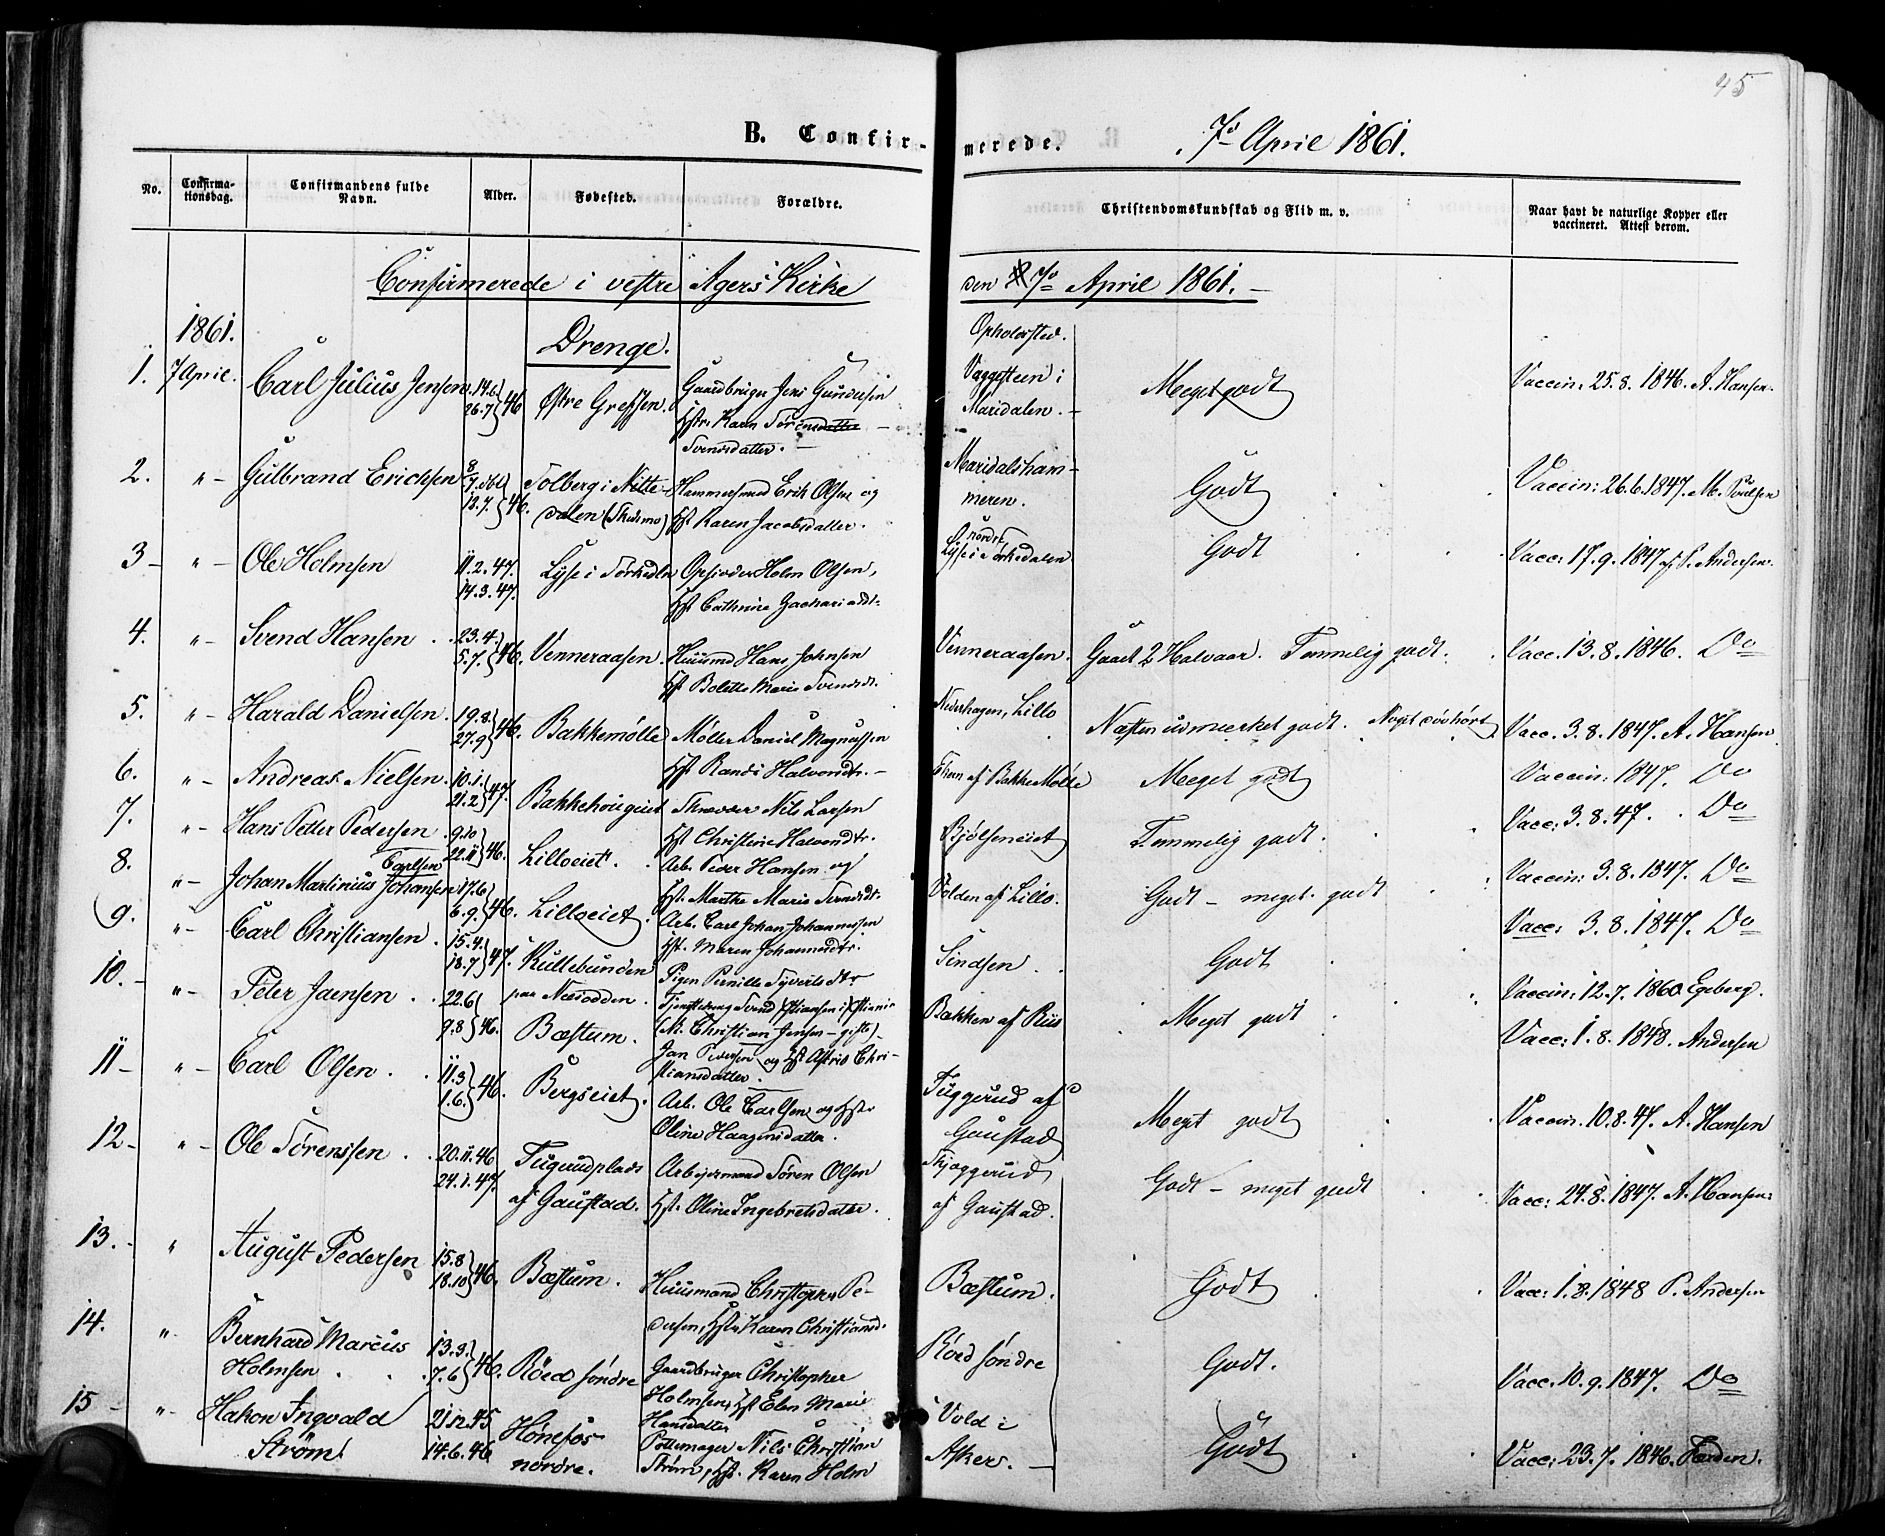 45
B. Confirmerede. 7de April 1861.
No. Confirmationsdag. Confirmandens fulde Navn. Alder. Fødested. Forældre. Christendomskundskab og Flid m. v. Naar havt de naturlige Kopper eller vaccineret. Attest derom.
Confirmerede i vestre Agers Kirke den 7de April 1861. —
1861. Drenge. Opholdssted.
1. 7 April. Carl Julius Jensen 14.6 26.7 } 46 Østre Grefsen. Gaardbruger Jens Gundersen Hstr. Karen Sørensdatter — Svensdatter. — Vaggesteen i Maridalen. — Meget godt Vaccin: 25.8.1846. A. Hansen.
2. " — Gulbrand Erichsen 8/7 dbt 12.7. } 46. Solberg i Nittedalen (Skedsmo) Hammersmed Erik Olsen og Hst Karen Jacobsdatter. Maridalshammeren. Godt Vaccin: 26.6.1847. M. Poulsen
3 — " — Ole Holmsen 11.2.47. 14.3.47. Lyse i Sørkedln Opsidder Holm Olsen, Hst Cathrine Zachariasdt. nordre Lyse i Sørkedalen Godt Vacc: 17.9.1847 af P. Andersen.
4. " — Svend Hansen 23.4. 5.7. } 46. Venneraasen. Huusmd Hans Johnsen Hst Bolette Marie Svendsdt. Venneraasen. Gaaet 2 Halvaar. Temmelig godt. Vacc. 13.8.1846. Do
5. " — Harald Danielsen. 19.8. 27.9 } 46. Bakkemølle Møller Daniel Magnussen Hst Randi Halvorsdtr. — Nederhagen, Lillo Næsten udmærket godt. Noget døvhørt Vacc. 3.8.1847. A. Hansen
6. " — Andreas Nielsen. 10.1. 21.2 } 47. Bakkehougeiet Nils Larsen Hst Christine Halvorsdtr. af Bakke Mølle Meget godt Vaccin: 1847. Do
7. " — Hans Petter Pedersen 9.10 22.11 } 46. Lilloeiet. Arb. Peder Hansen og Hst. Marthe Marie Svendsdt. Bjølseneiet Temmelig godt. Vacc: 3.8.47. Do
8. " — Johan Martinius Johansen Carlsen 17.6 6.9. } 46. Lilloeiet. Arb. Carl Johan Johannesen Hst. Maren Johannesdtr. Volden af Lillo. Godt — meget godt Vaccin: 3.8.1847. Do
9. " — Carl Christiansen. 15.4. 18.7 } 47. Kullebunden paa Næsodden. Pigen Pernille Syvertsdtr Tjenestedreng Svend Christiansen i Christiania Sindsen Godt Vacc: 3.8.1847. Do
10. — " — Peter Jansen. 22.6 9.8 } 46. Bæstum. (N: Christian Jensen — gift) Jan Pedersen og Hst Astrid Christiansdatter. Bakken af Riis Meget godt Vaccin: 12.7.1860. Egeberg.
Vacc: 1.8.1848. Andersen
11 — " — Carl Olsen. 11.3 1.6. } 46. Bergseiet. Arb. Ole Carlsen og Hst. Oline Haagensdatter. Tuggerud af Gaustad Meget godt Vaccin. 10.8.47. A. Hansen
12 — " — Ole Sørenssen. 20.11.46 24.1.47. Tugerudplads af Gaustad. Arbeidermand Søren Olsen Hst. Oline Ingebretsdatter. Skjøggerud af Gaustad. Godt — meget godt Vacc: 24.8.1847. A. Hansen.
13. — " August Pedersen 15.8 18.10 } 46. Bæstum. Huusmand Christopher Pedersen, Hstr Karen Christiansd. Bæstum. Godt Vacc: 1.8.1848 P. Andersen
14. " — Bernhard Marcus Holmsen. 13.3. 7.6 } 46. Röed søndre Gaardbruger Christopher Holmsen, Hst Elen Marie Hansdatter Röed søndre Godt. Vacc. 10.9.1847. Do
15 — " — Hakon Ingvald Strøm 21.12.45 14.6.46 Hönefos nordre. Pottemager Nils Christian Strøm, Hst. Karen Holm Vold i Asker. — Godt Vacc: 23.7.1846.